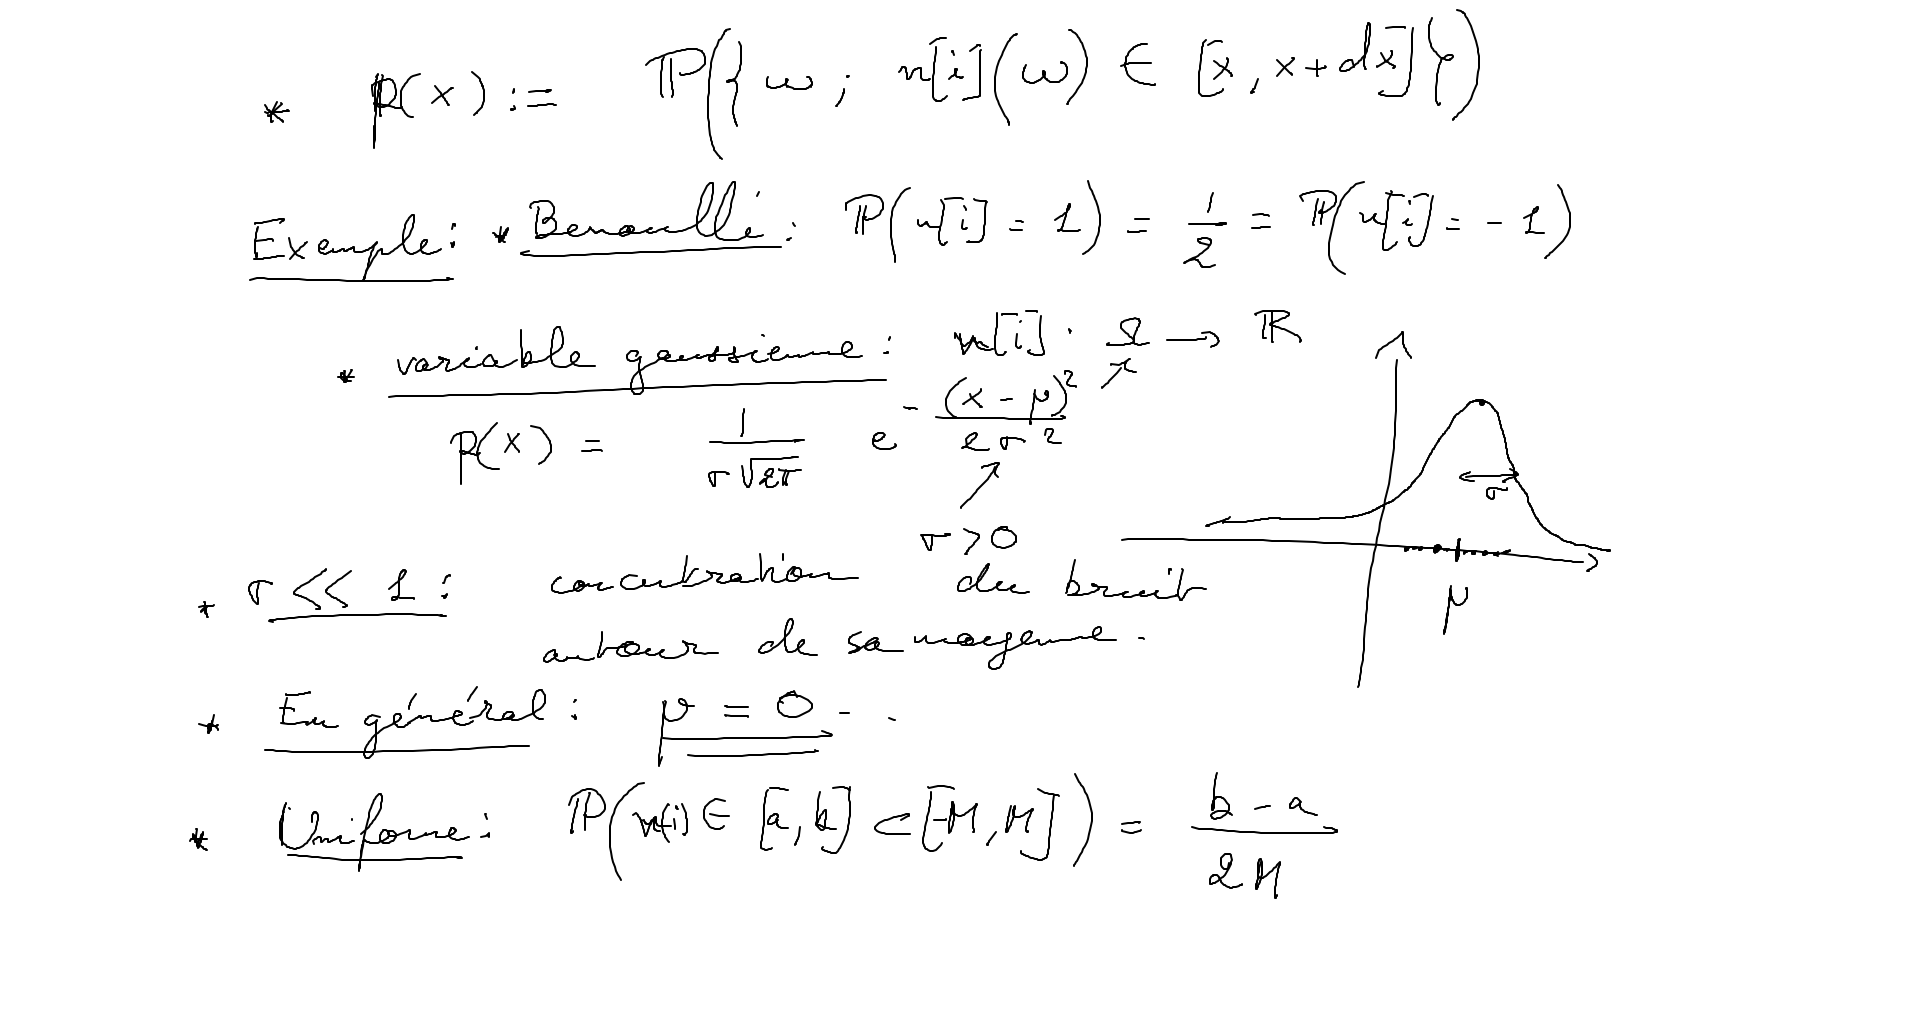 * p(x) := ℙ({ω ; n[i](ω) ∈ [x, x+dx]})
Exemple : * Bernoulli : ℙ(n[i] = 1) = 1/2 = ℙ(n[i] = -1)
* variable gaussienne : n[i] : Ω → ℝ
p(x) = 1/(σ√2π) e^(-(x-μ)²/2σ²)
σ > 0
σ
μ
* σ << 1 : concentration du bruit
autour de sa moyenne.
* En général : μ = 0 - .
* Uniforme : ℙ(n(i) ∈ [a,b] ⊂ [-M,M]) = (b-a)/2M